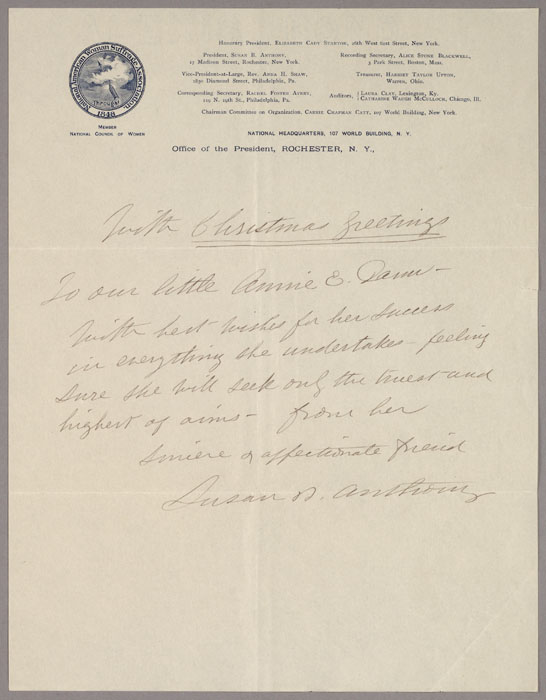 National American Woman Suffrage Association.
1848
MEMBER
NATIONAL COUNCIL OF WOMEN
Honorary President, ELIZABETH CADY STANTON, 26th West 61st Street, New York.
President, SUSAN B. ANTHONY,
17 Madison Street, Rochester, New York.
Recording Secretary, ALICE STONE BLACKWELL,
3 Park Street, Boston, Mass.
Vice-President-at-Large, REV. ANNA H. SHAW,
1830 Diamond Street, Philadelphia, Pa.
Treasurer, HARRIET TAYLOR UPTON,
Warren, Ohio.
Corresponding Secretary, RACHEL FOSTER AVERY,
119 N. 19th St., Philadelphia, Pa.
Auditors, { LAURA CLAY, Lexington, Ky.
CATHARINE WAUGH MCCULLOCH, Chicago, Ill.
Chairman Committee on Organization, CARRIE CHAPMAN CATT, 107 World Building, New York.
NATIONAL HEADQUARTERS, 107 WORLD BUILDING, N. Y.
Office of the President, ROCHESTER, N. Y.,
With Christmas Greetings
To our little Annie E. Dann -
With best wishes for her success
in everything she undertakes - feeling
sure she will seek only the truest and
highest of aims - from her
sincere & affectionate friend
Susan B. Anthony